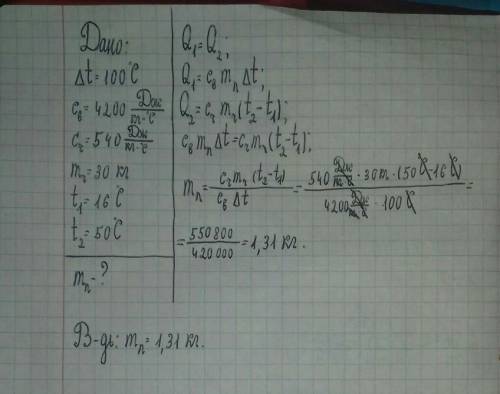 Дано:
Δt = 100°C
c_в = 4200 Дж/кг·°C
c_г = 540 Дж/кг·°C
m_г = 30 кг
t₁ = 16°C
t₂ = 50°C
m_п - ?
Q₁ = Q₂;
Q₁ = c_в m_п Δt;
Q₂ = c_г m_г (t₂ - t₁);
c_в m_п Δt = c_г m_г (t₂ - t₁);
m_п = c_г m_г (t₂ - t₁) / c_в Δt = 540 Дж/кг·°C · 30 кг · (50°C - 16°C) / 4200 Дж/кг·°C · 100°C =
= 550800 / 420000 = 1,31 кг.
В-дь: m_п = 1,31 кг.